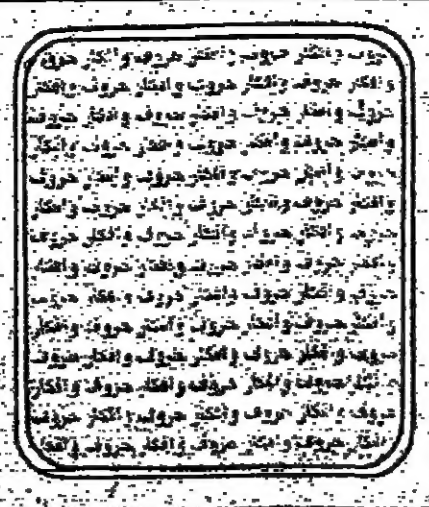 حروف وأفكار حروف وأفكار حروف وأفكار حروف
وأفكار حروف وأفكار حروف وأفكار حروف وأفكار
حروف وأفكار حروف وأفكار حروف وأفكار حروف
وأفكار حروف وأفكار حروف وأفكار حروف وأفكار
حروف وأفكار حروف وأفكار حروف وأفكار حروف
وأفكار حروف وأفكار حروف وأفكار حروف وأفكار
حروف وأفكار حروف وأفكار حروف وأفكار حروف
وأفكار حروف وأفكار حروف وأفكار حروف وأفكار
حروف وأفكار حروف وأفكار حروف وأفكار حروف
وأفكار حروف وأفكار حروف وأفكار حروف وأفكار
حروف وأفكار حروف وأفكار حروف وأفكار حروف
وأفكار حروف وأفكار حروف وأفكار حروف وأفكار
حروف وأفكار حروف وأفكار حروف وأفكار حروف
وأفكار حروف وأفكار حروف وأفكار حروف وأفكار